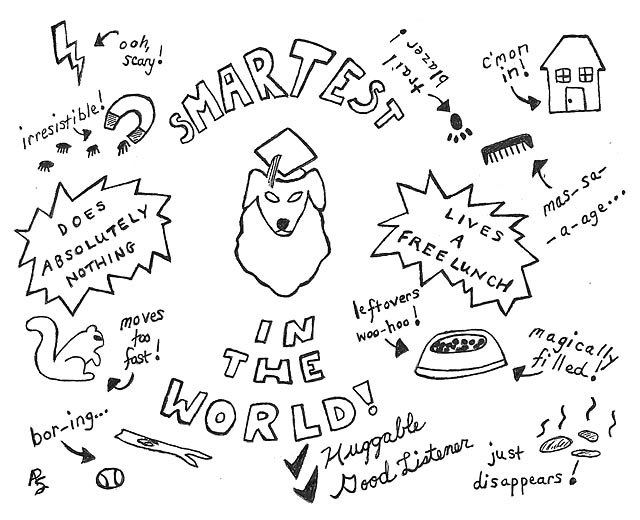 ooh,
scary!
irresistible!
SMARTEST
trail
blazer!
c'mon
in!
mas-sa-
-a-age...
DOES
ABSOLUTELY
NOTHING
LIVES
A
FREE LUNCH
moves
too
fast!
IN
THE
WORLD!
leftovers
woo-hoo!
magically
filled!
bor-ing...
Huggable
Good Listener
just
disappears!